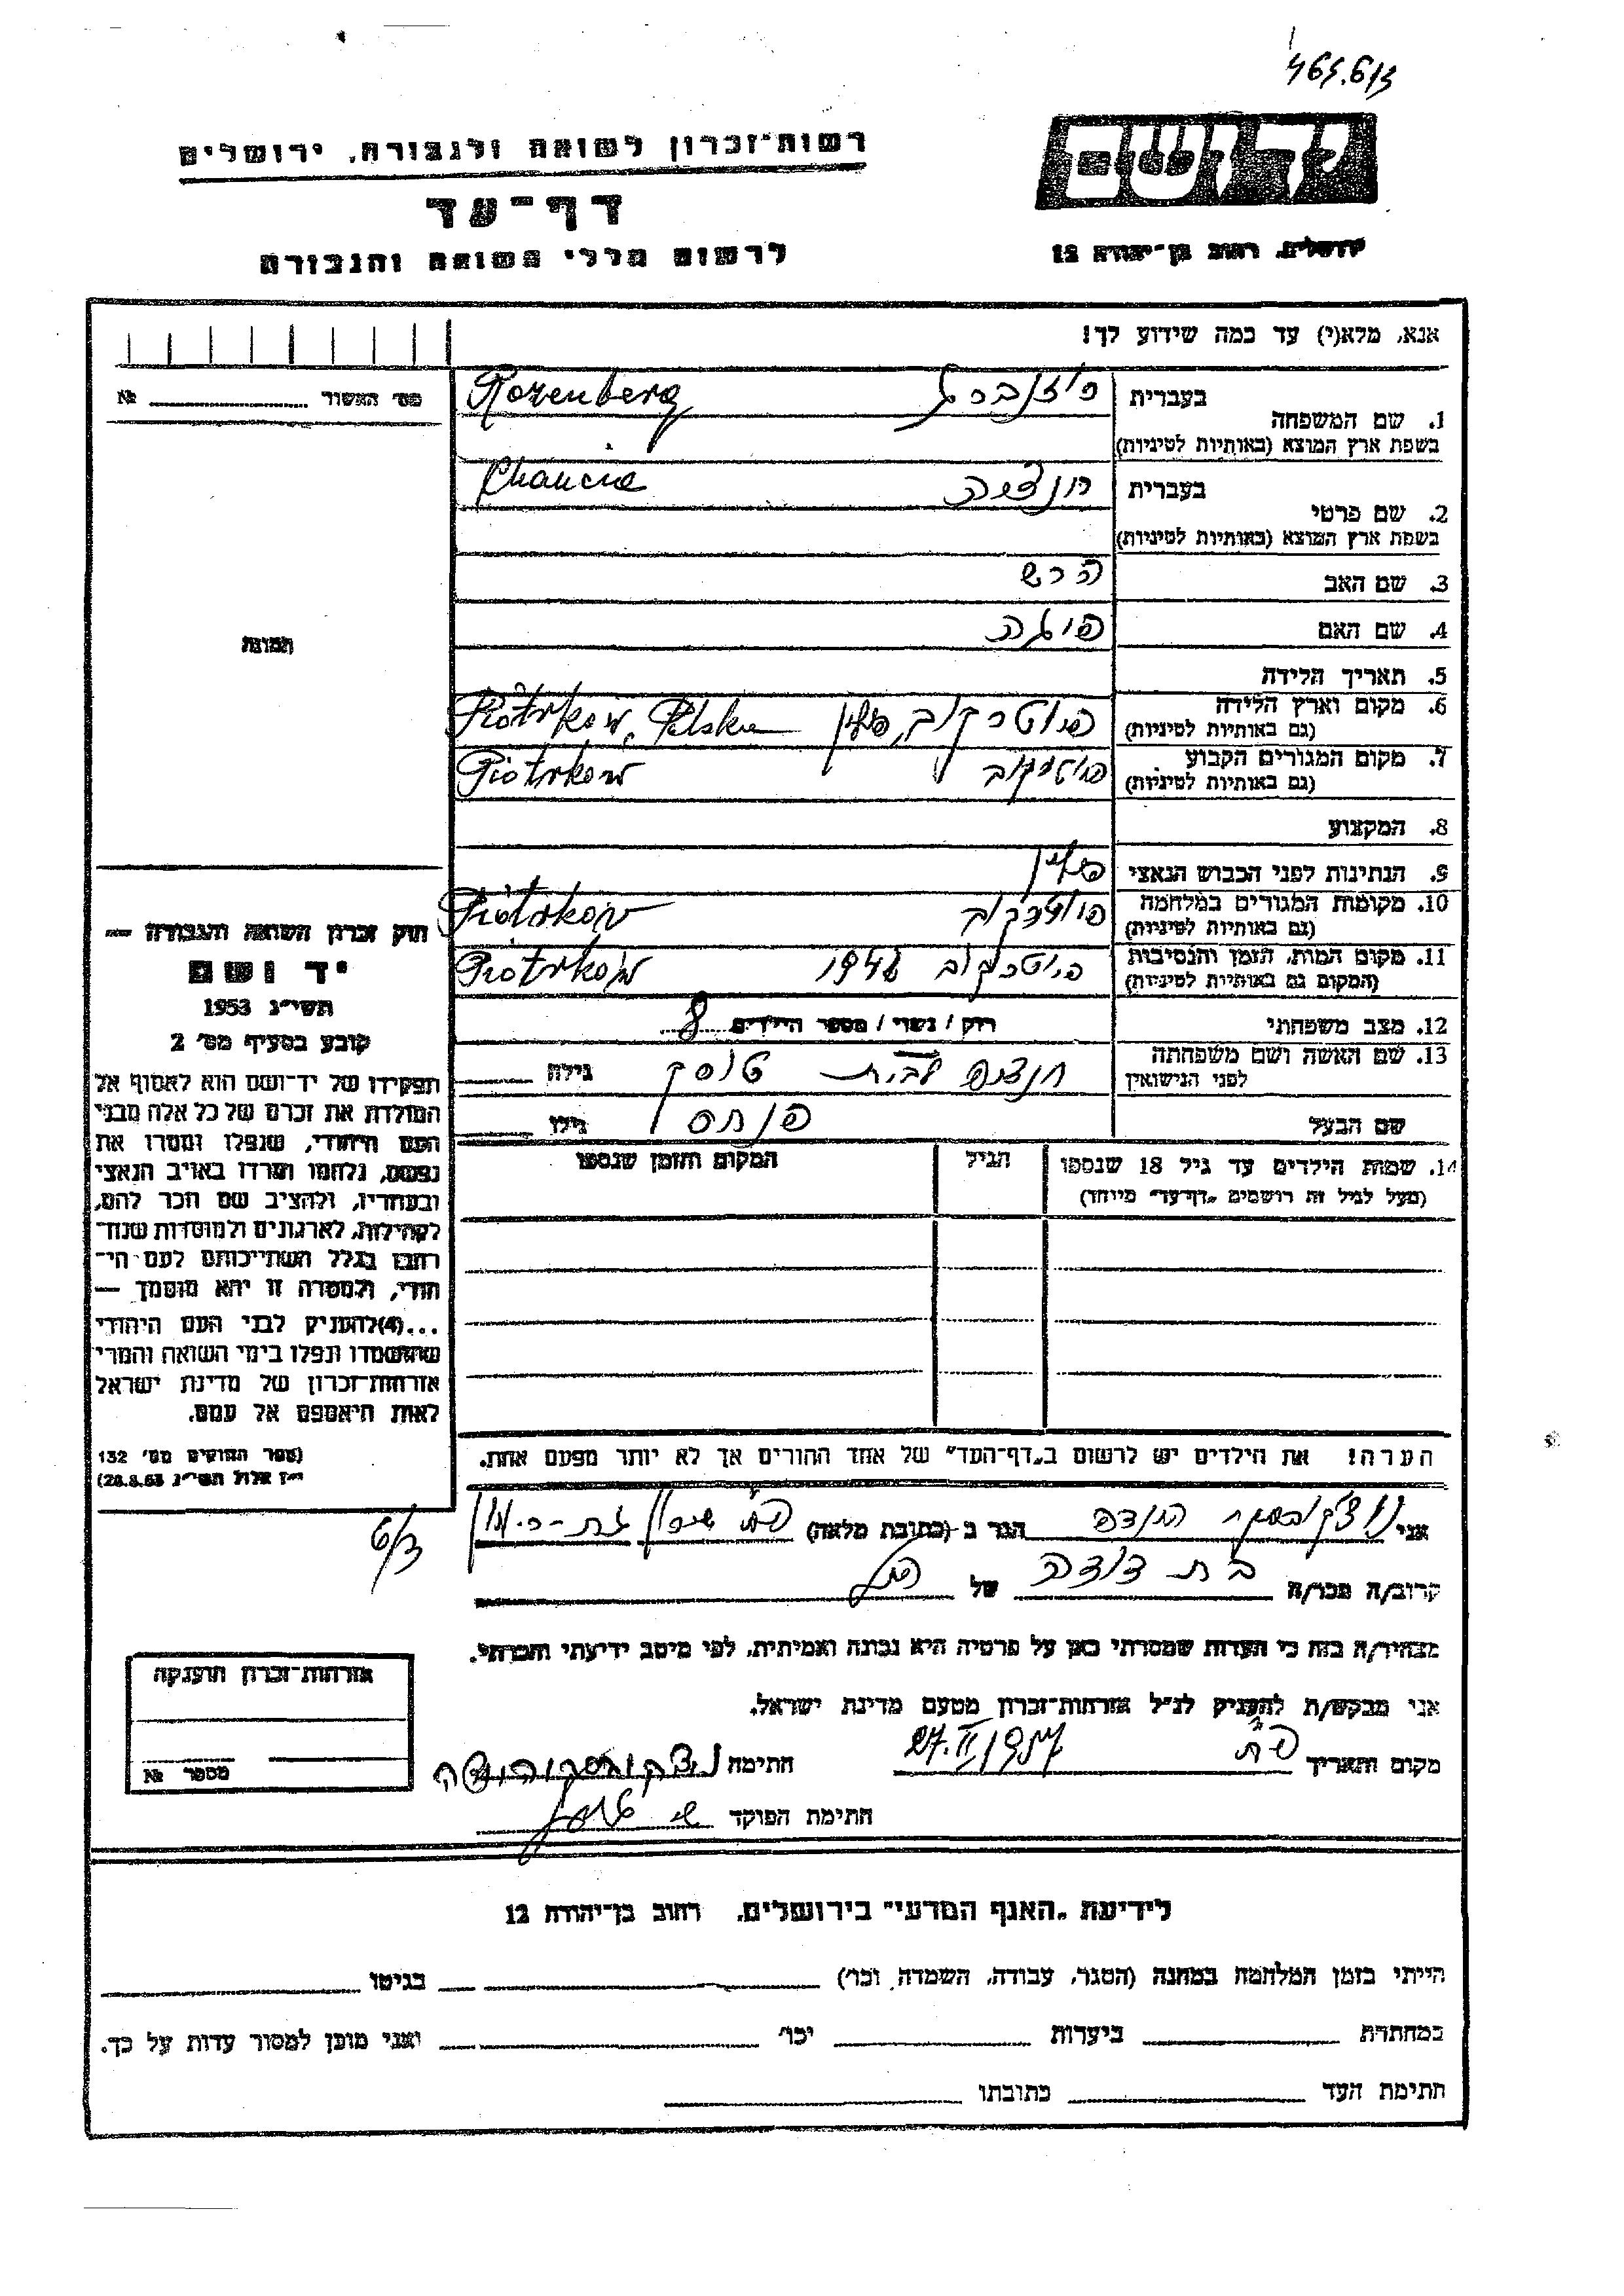 465.6/3
יד ושם
ירושלים, רחוב בן־יהודה 12
רשות־זכרון לשואה ולגבורה, ירושלים
דף־עד
לרשום חללי השואה והגבורה
אנא, מלא(י) עד כמה שידוע לך!
מס׳ האשור № 
1. שם המשפחה בעברית רוזנברג Rozenberg
בשפת ארץ המוצא (באותיות לטיניות)
2. שם פרטי בעברית חנציה Chancia
בשפת ארץ המוצא (באותיות לטיניות)
3. שם האב הרש
4. שם האם פיגה
5. תאריך הלידה
6. מקום וארץ הלידה פיוטרקוב, פולין Piotrków, Polska
(גם באותיות לטיניות)
7. מקום המגורים הקבוע פיוטרקוב Piotrków
(גם באותיות לטיניות)
8. המקצוע
9. הנתינות לפני הכבוש הנאצי פולין
10. מקומות המגורים במלחמה פיוטרקוב Piotrków
(גם באותיות לטיניות)
11. מקום המות, הזמן והנסיבות פיוטרקוב Piotrków
(המקום גם באותיות לטיניות)
12. מצב משפחתי רווק / נשוי / מספר הילדים 8
13. שם האשה ושם משפחתה לבית גילה
לפני הנישואין
שם הבעל פנחס גילו
14. שמות הילדים עד גיל 18 שנספו הגיל המקום והזמן שנספו
(מעל לגיל זה רושמים „דף־עד״ מיוחד)
הערה! את הילדים יש לרשום ב„דף־העד״ של אחד ההורים אך לא יותר מפעם אחת.
תמונה
חוק זכרון השואה והגבורה —
יד ושם
תשי״ג 1953
קובע בסעיף מס׳ 2
תפקידו של יד־ושם הוא לאסוף אל
המולדת את זכרם של כל אלה מבני
העם היהודי, שנפלו ומסרו את
נפשם, נלחמו ומרדו באויב הנאצי
ובעוזריו, ולהציב שם וזכר להם,
לקהילות, לארגונים ולמוסדות שנח־
רבו בגלל השתייכותם לעם הי־
הודי, ולמטרה זו יהא מוסמך —
...(4)להעניק לבני העם היהודי
שהושמדו ונפלו בימי השואה והמרי
אזרחות־זכרון של מדינת ישראל
לאות היאספם אל עמם.
(ספר החוקים מס׳ 132
י״ז אלול תשי״ג 28.8.53)
6/3
אני הגר ב־(כתובת מלאה)
קרוב/ה מכר/ה בת דודה של הנ״ל
מצהיר/ה בזה כי העדות שמסרתי כאן על פרטיה היא נכונה ואמיתית, לפי מיטב ידיעתי והכרתי.
אני מבקש/ת להעניק לנ״ל אזרחות־זכרון מטעם מדינת ישראל.
מקום ותאריך פ״ת 27.II 1957 חתימה
חתימת הפוקד
אזרחות־זכרון הוענקה
מספר №
לידיעת „האגף המדעי״ בירושלים, רחוב בן־יהודה 12
הייתי בזמן המלחמה במחנה (הסגר, עבודה, השמדה, וכו׳) בגיטו
במחתרת ביערות וכו׳ ואני מוכן למסור עדות על כך.
חתימת העד כתובתו